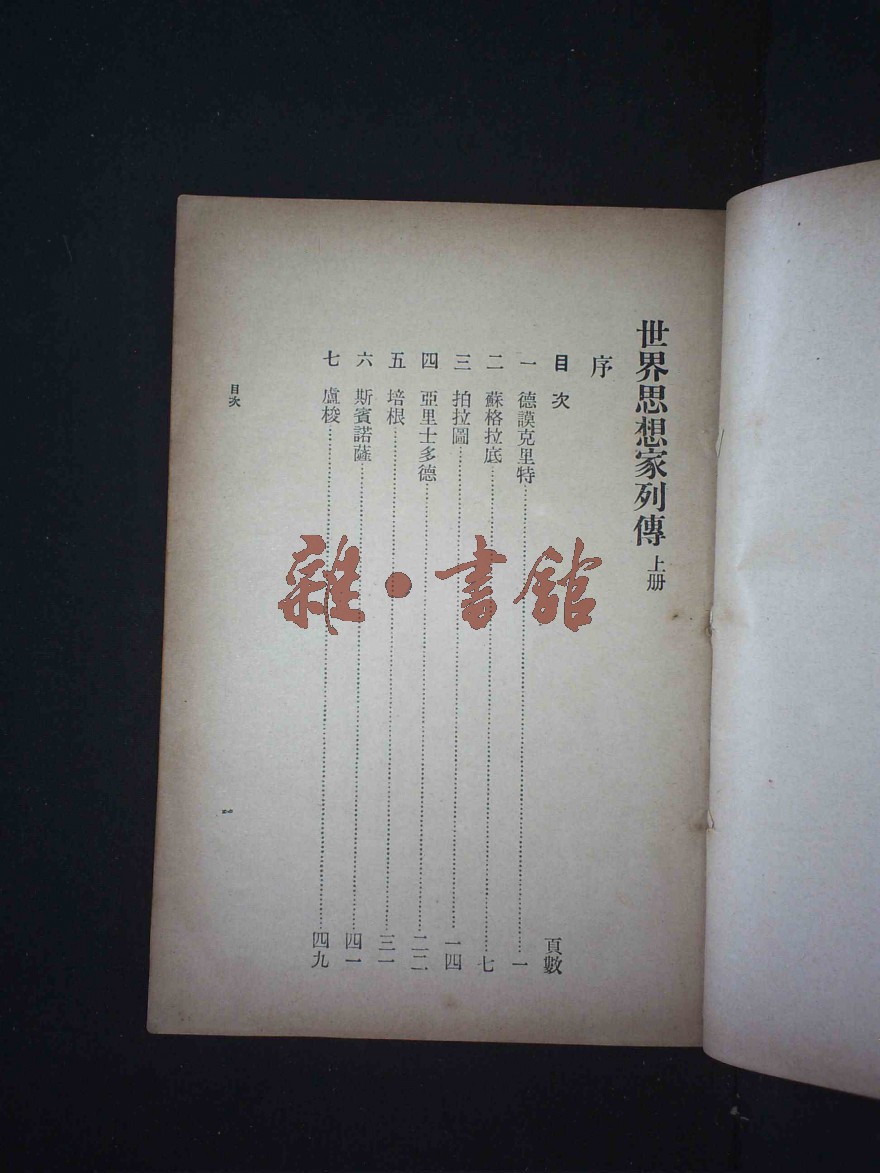 世界思想家列傳 上册
序
目次 頁數
一 德謨克里特 一
二 蘇格拉底 七
三 拍拉圖 一四
四 亞里士多德 二二
五 培根 三一
六 斯賓諾薩 四一
七 盧梭 四九
目次
一
雜·書館